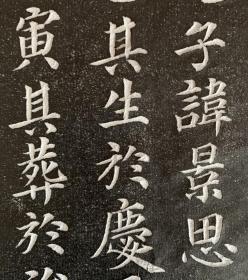 子諱景思
其生於慶
寅其葬於